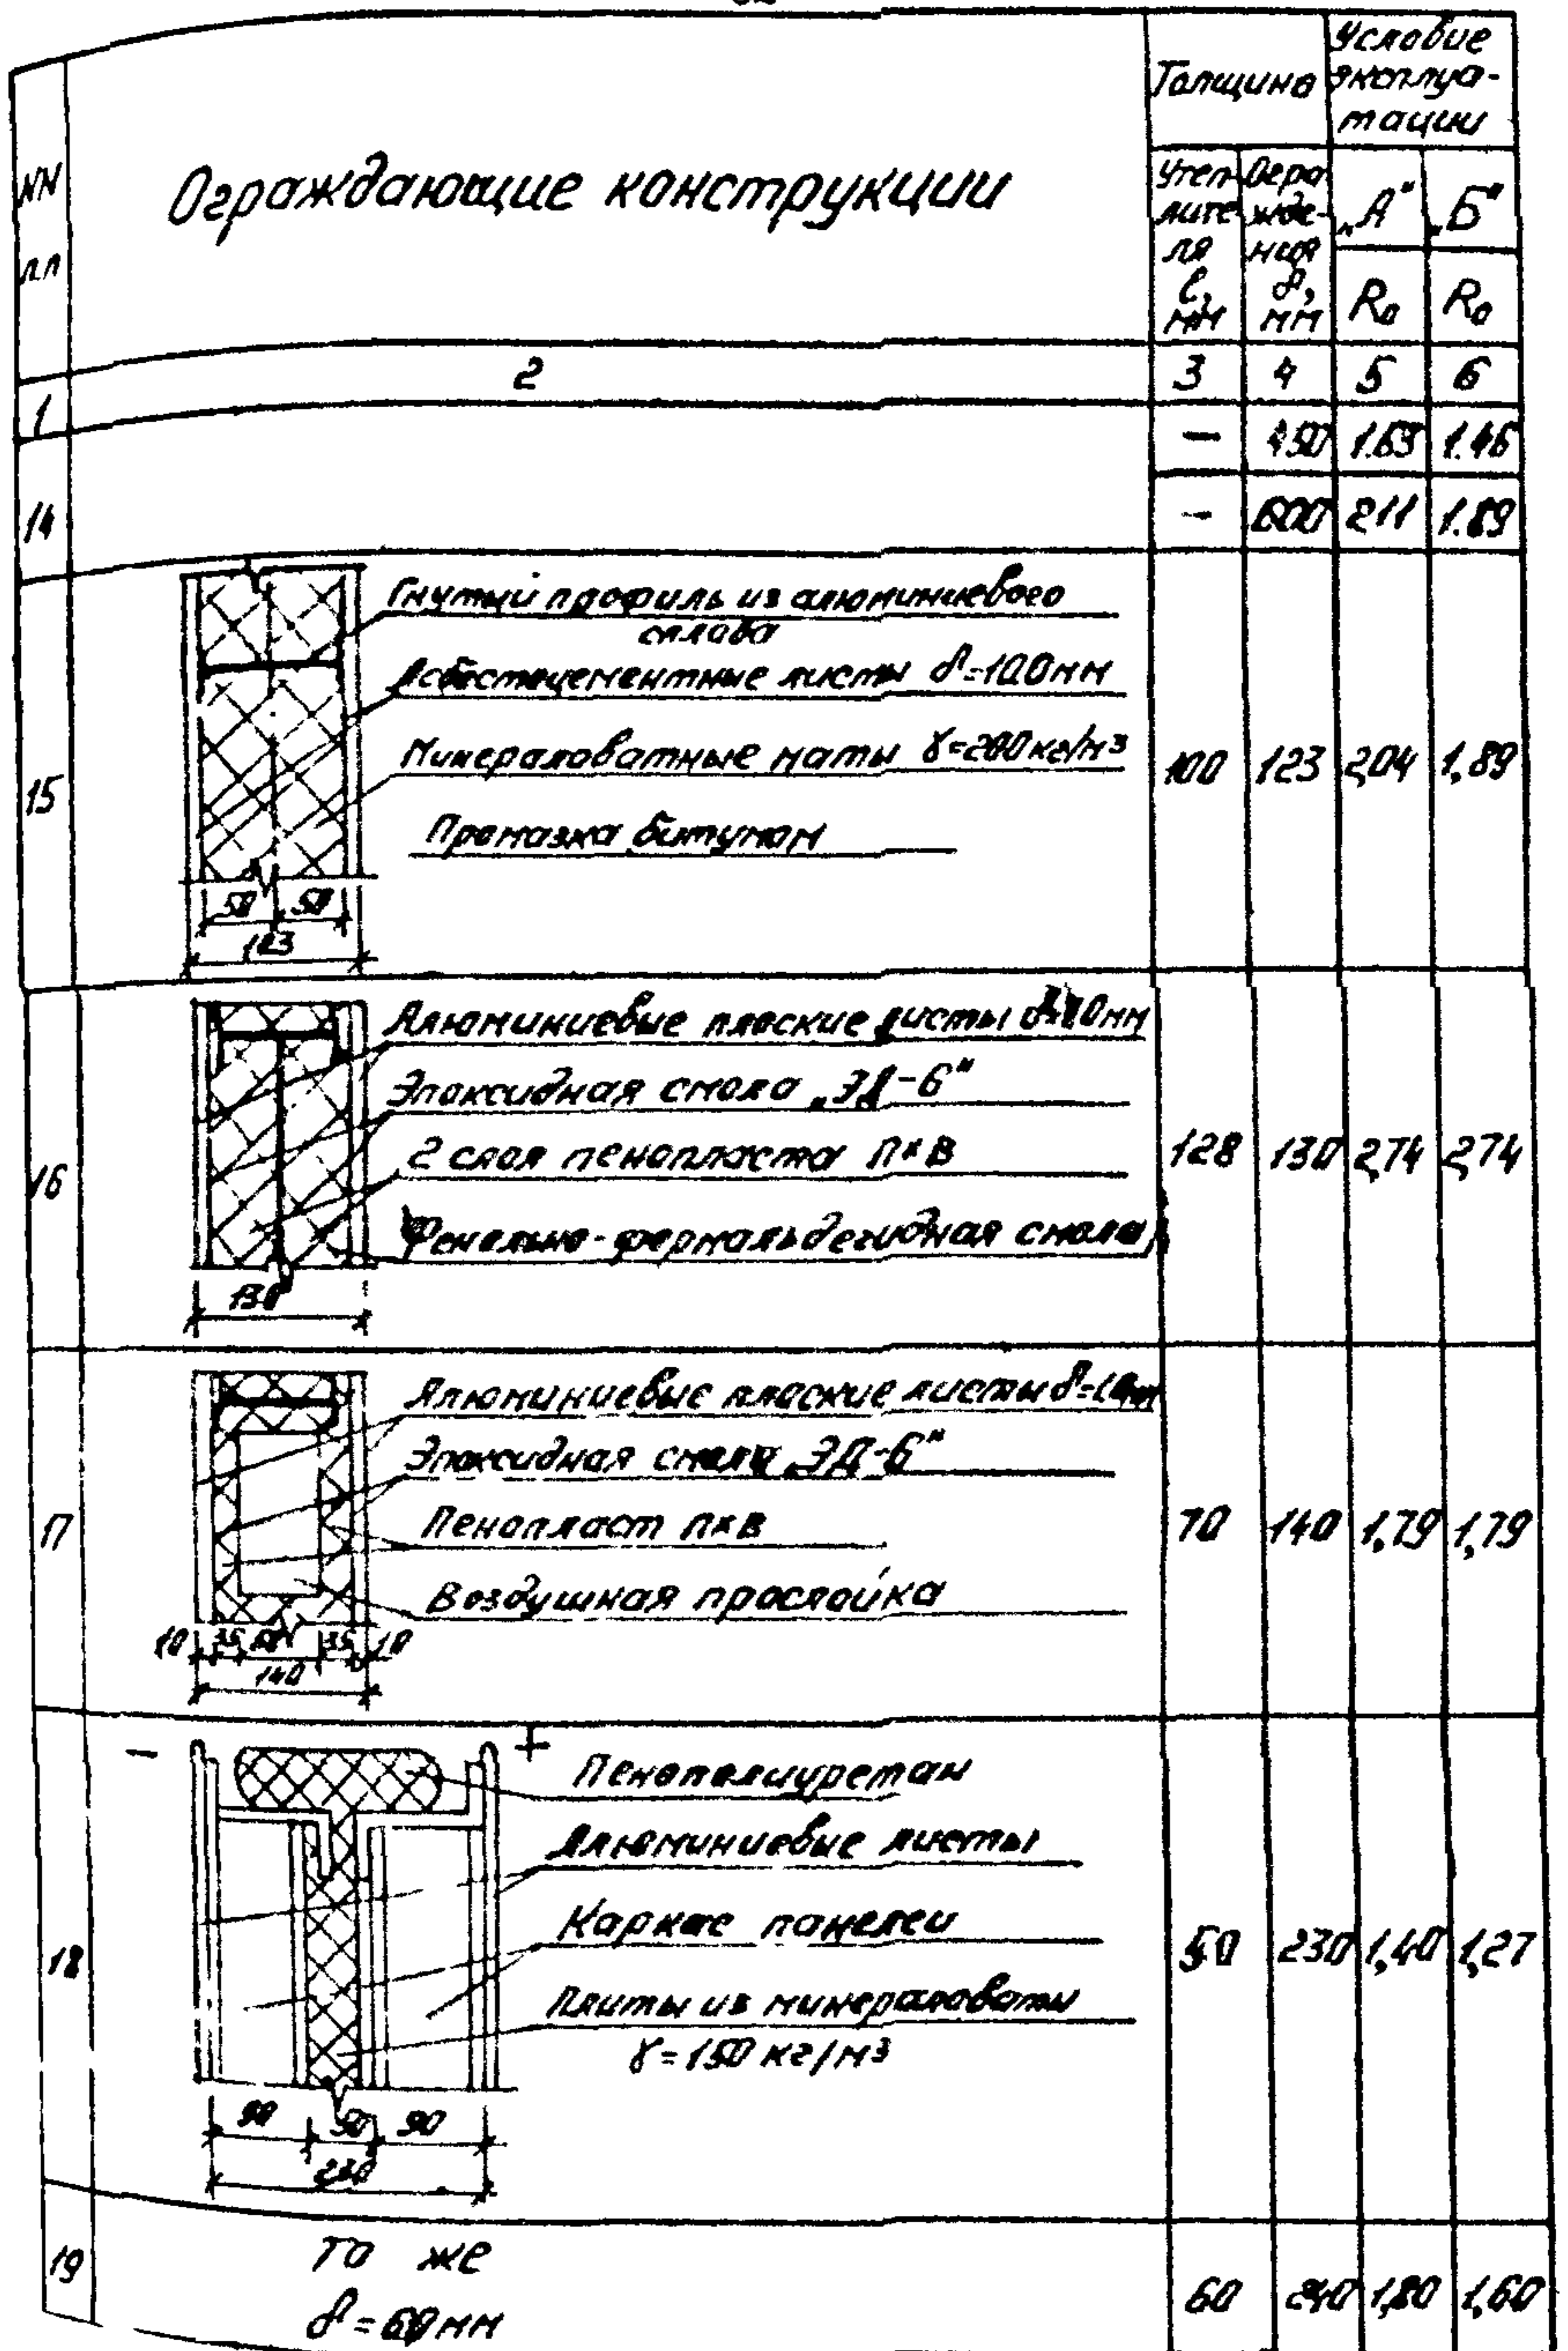 NN
пп
Ограждающие конструкции
Толщина
Условие
эксплуа-
тации
Утеп-
лите
ля
ℓ,
мм
Огра
жде-
ния
δ,
мм
„А"
„Б"
R₀
R₀
1
2
3
4
5
6
14
—
450
1.63
1.46
—
600
2,11
1.89
15
Гнутый профиль из алюминиевого
сплава
Асбестоцементные листы δ=10,0мм
Минераловатные маты γ=200кг/м³
Промазка битумом
50
50
123
100
123
2,04
1,89
16
Алюминиевые плоские листы
Эпоксидная смола „ЭД-6"
2 слоя пенопласта ПХВ
Фенольно-формальдегидная смола
130
128
130
2,74
2,74
17
Алюминиевые плоские листы
Эпоксидная смола „ЭД-6"
Пенопласт ПХВ
Воздушная прослойка
10
35
35
10
140
70
140
1,79
1,79
18
—
+
Пенополиуретан
Алюминиевые листы
Каркас панелей
Плиты из минераловаты
γ=150 кг/м³
90
50
90
230
50
230
1,40
1,27
19
То же
δ=60мм
60
240
1,80
1,60